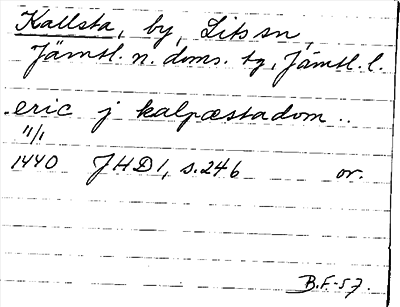 Kallsta, by, Lits sn,
Jämtl. n. doms. tg, Jämtl. l.
eric j kalpæstadom ..
11/1
1440 JHD 1, s. 246 or.
B.F-57.